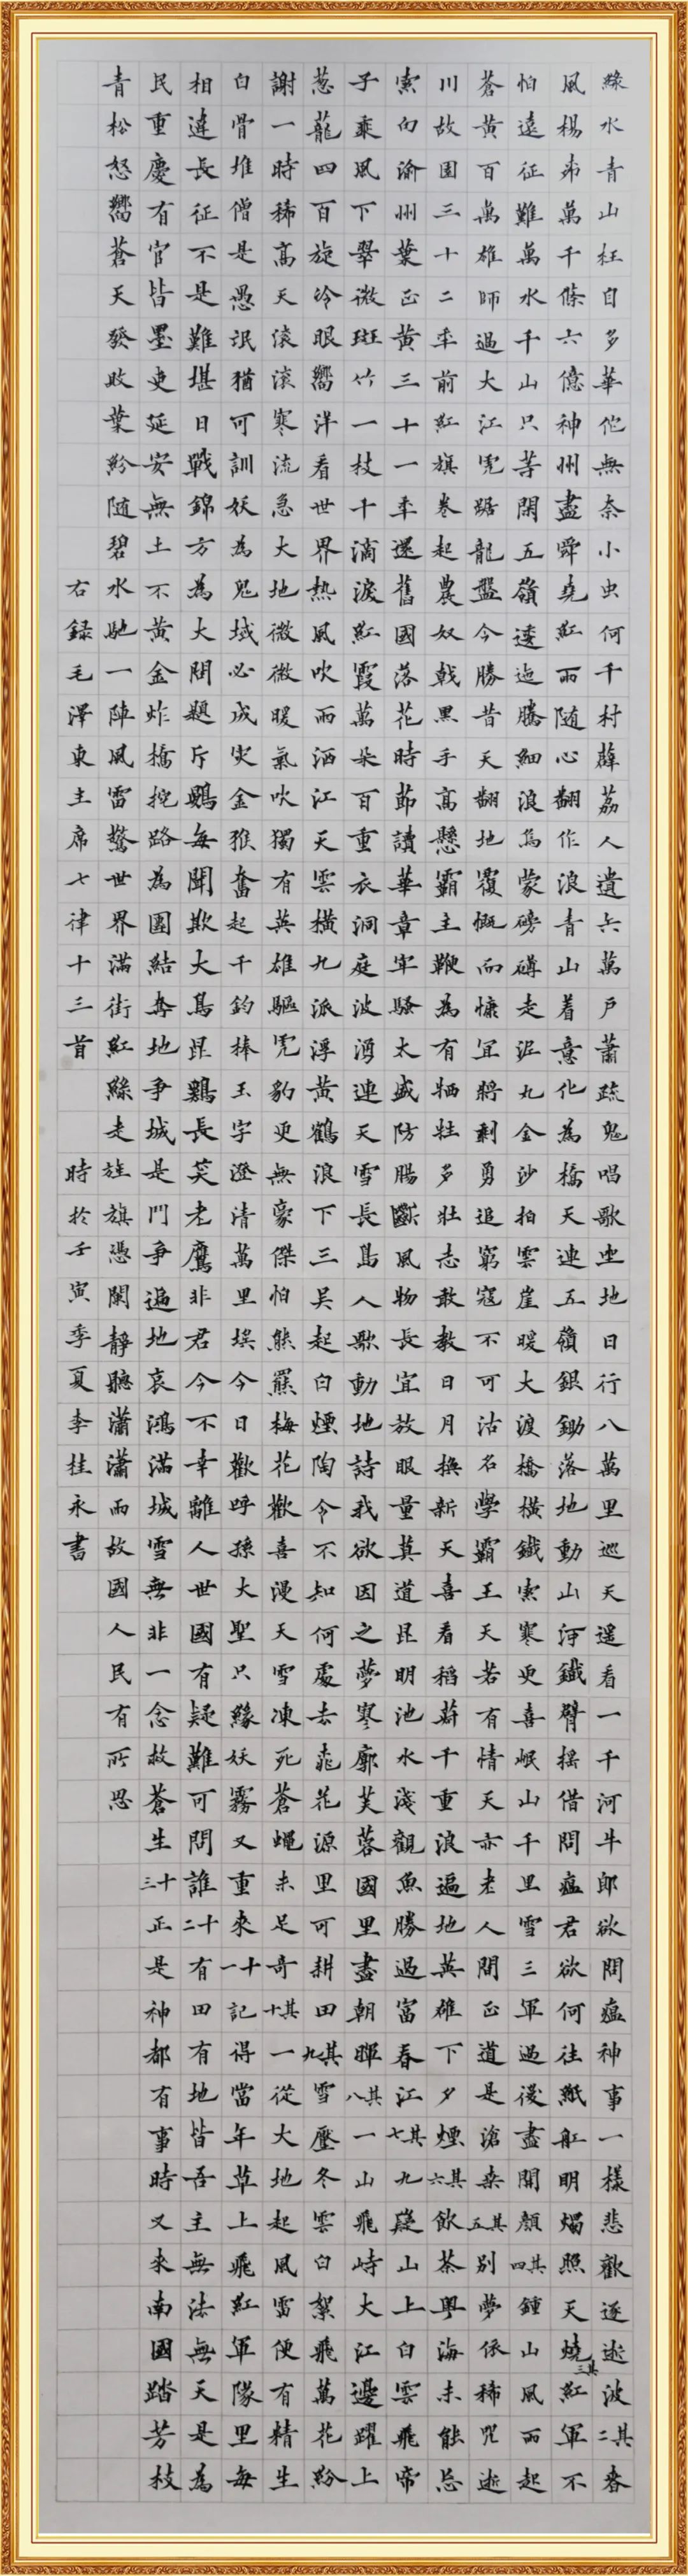 綠水青山枉自多華佗無奈小虫何千村薜荔人遺矢萬戶蕭疏鬼唱歌坐地日行八萬里巡天遙看一千河牛郎欲問瘟神事一樣悲歡逐逝波其二春
風楊柳萬千條六億神州盡舜堯紅雨隨心翻作浪青山着意化為橋天連五嶺銀鋤落地動山河鐵臂搖借問瘟君欲何往紙船明燭照天燒其三紅軍不
怕遠征難萬水千山只等閑五嶺逶迤騰細浪烏蒙磅礴走泥丸金沙拍雲崖暖大渡橋橫鐵索寒更喜岷山千里雪三軍過後盡開顏其四鍾山風雨起
蒼黃百萬雄師過大江虎踞龍盤今勝昔天翻地覆慨而慷宜將剩勇追窮寇不可沽名學霸王天若有情天亦老人間正道是滄桑其五別夢依稀咒逝
川故園三十二年前紅旗卷起農奴戟黑手高懸霸主鞭為有牺牲多壯志敢教日月換新天喜看稻菽千重浪遍地英雄下夕煙其六飲茶粵海未能忘
索句渝州葉正黃三十一年還舊國落花時節讀華章牢騷太盛防腸斷風物長宜放眼量莫道昆明池水淺觀魚勝過富春江其七九嶷山上白雲飛帝
子乘風下翠微斑竹一枝千滴淚紅霞萬朵百重衣洞庭波湧連天雪長島人歌動地詩我欲因之夢寥廓芙蓉國里盡朝暉其八一山飛峙大江邊躍上
葱蘢四百旋冷眼嚮洋看世界熱風吹雨洒江天雲橫九派浮黃鶴浪下三吳起白煙陶令不知何處去桃花源里可耕田其九雪壓冬雲白絮飛萬花紛
謝一時稀高天滾滾寒流急大地微微暖氣吹獨有英雄驅虎豹更無豪傑怕熊羆梅花歡喜漫天雪凍死蒼蠅未足奇其十一從大地起風雷便有精生
白骨堆僧是愚氓猶可訓妖為鬼蜮必成災金猴奮起千鈞棒玉宇澄清萬里埃今日歡呼孫大聖只緣妖霧又重來十一記得當年草上飛紅軍隊里每
相違長征不是難堪日戰錦方為大問題斥鷃每聞欺大鳥昆鷄長笑老鷹非君今不幸離人世國有疑難可問誰十二有田有地皆吾主無法無天是為
民重慶有官皆墨吏延安無土不黃金炸橋挖路為團結奪地爭城是鬥爭遍地哀鴻滿城雪無非一念救蒼生十三正是神都有事時又來南國踏芳枝
青松怒嚮蒼天發敗葉紛隨碧水馳一陣風雷驚世界滿街紅綠走旌旗憑闌靜聽瀟瀟雨故國人民有所思
右録毛澤東主席七律十三首 時於壬寅季夏李桂永書